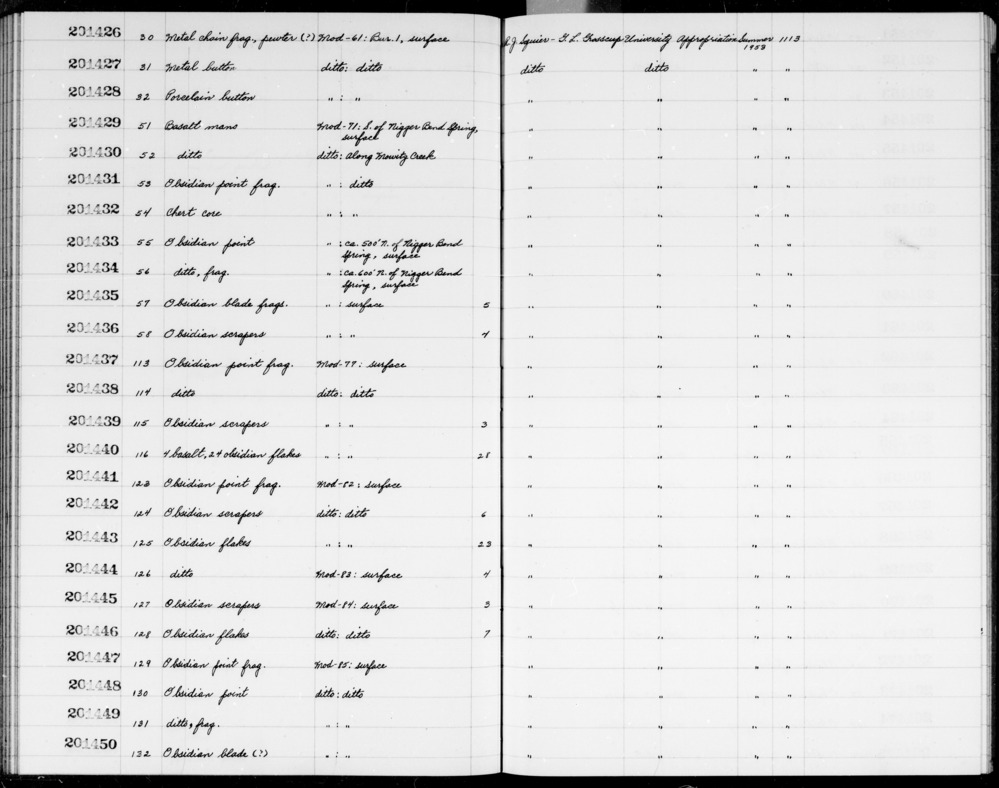 201426 30 Metal chain frag., pewter (?) Mod-61: Bur. 1, surface R.J. Squier - G.L. Grosscup University Appropriation Summer 1953 1113
201427 31 Metal button ditto: ditto ditto ditto " "
201428 32 Porcelain button " : " " " " "
201429 51 Basalt mano Mod-71: S. of Nigger Bend Spring, surface " " " "
201430 52 ditto ditto: Along Mowitz Creek " " " "
201431 53 Obsidian point frag. " : ditto " " " "
201432 54 Chert core " : " " " " "
201433 55 Obsidian point " : ca. 500' N. of Nigger Bend Spring, surface " " " "
201434 56 ditto, frag. " : ca. 600' N. of Nigger Bend Spring, surface " " " "
201435 57 Obsidian blade frags. " : surface 5 " " " "
201436 58 Obsidian scrapers " : " 4 " " " "
201437 113 Obsidian point frag. Mod-77: surface " " " "
201438 114 ditto ditto: ditto " " " "
201439 115 Obsidian scrapers " : " 3 " " " "
201440 116 4 basalt, 24 obsidian flakes " : " 28 " " " "
201441 123 Obsidian point frag. Mod-82: surface " " " "
201442 124 Obsidian scrapers ditto: ditto 6 " " " "
201443 125 Obsidian flakes " : " 23 " " " "
201444 126 ditto Mod-83: surface 4 " " " "
201445 127 Obsidian scrapers Mod-84: surface 3 " " " "
201446 128 Obsidian flakes ditto: ditto 7 " " " "
201447 129 Obsidian point frag. Mod-85: surface " " " "
201448 130 Obsidian point ditto: ditto " " " "
201449 131 ditto, frag. " : " " " " "
201450 132 Obsidian blade (?) " : " " " " "